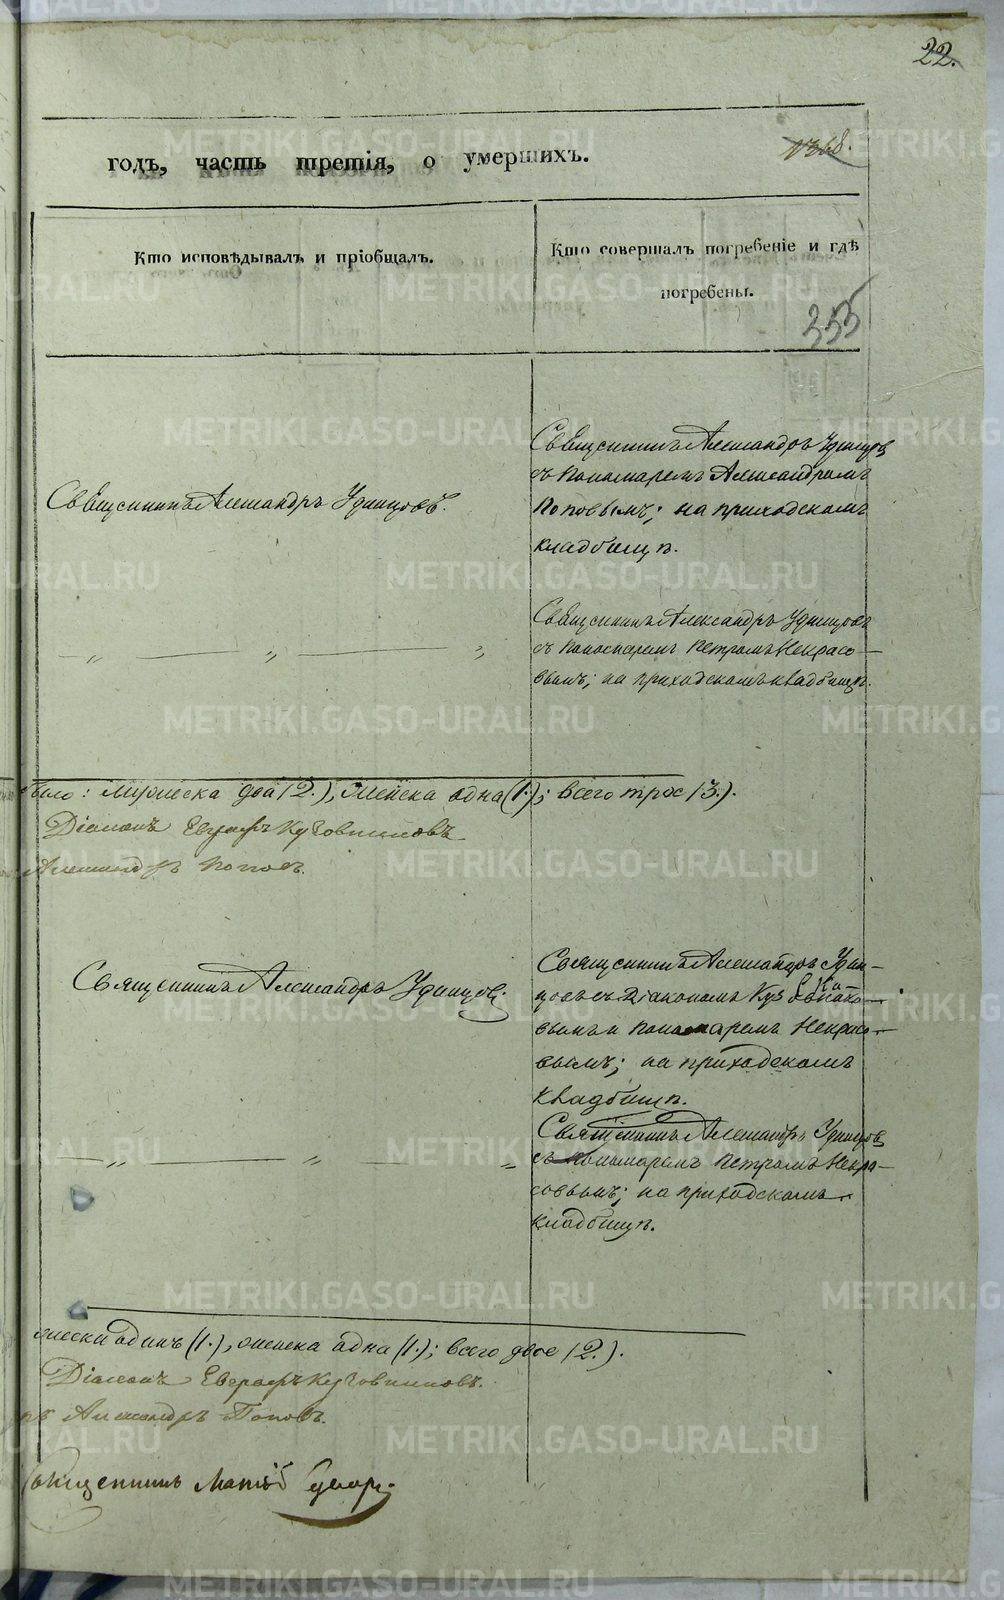 22.
1368.
годъ, часть третія, о умершихъ.
Кто исповѣдывалъ и пріобщалъ.
Кто совершалъ погребеніе и гдѣ
погребены.
355
Священникъ Александръ Удинцовъ.
Священникъ Александръ Удинцовъ
съ Пономаремъ Александромъ
Поповымъ; на приходскомъ
кладбищѣ.
— „ — „ — „
Священникъ Александръ Удинцовъ
съ Пономаремъ Петромъ Некрасо–
вымъ; на приходскомъ кладбищѣ.
было: мужеска два (2.), женска одна (1.); всего трое (3.).
Діаконъ Евграфъ
Александръ Поповъ.
Священникъ Александръ Удинцовъ.
Священникъ Александръ Удин–
цовъ съ Діакономъ
вымъ и Пономаремъ Некрасо–
вымъ; на приходскомъ
кладбищѣ.
— „ — „ — „
Священникъ Александръ Удинцовъ
съ Пономаремъ Петромъ Некра–
совымъ; на приходскомъ
кладбищѣ.
жески одинъ (1.), женска одна (1.); всего двое (2.).
Діаконъ Евграфъ
Александръ Поповъ.
Священникъ
METRIKI.GASO-URAL.RU